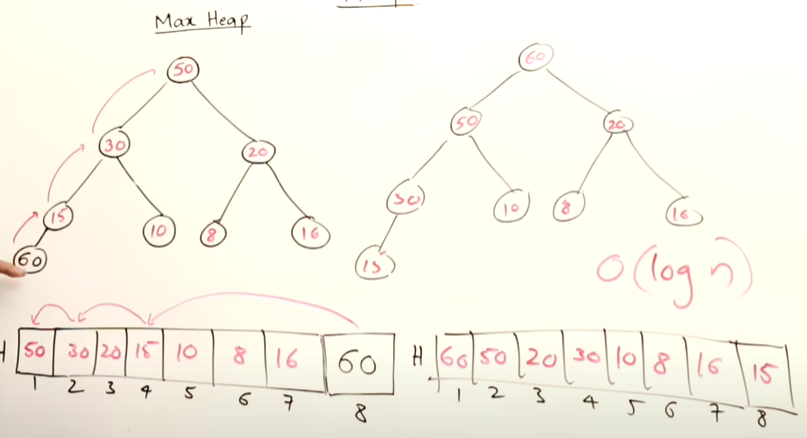 Max Heap
50
60
30
20
50
20
15
10
8
16
30
10
8
16
60
15
O(log n)
H 50 30 20 15 10 8 16 60
1 2 3 4 5 6 7 8
H 60 50 20 30 10 8 16 15
1 2 3 4 5 6 7 8